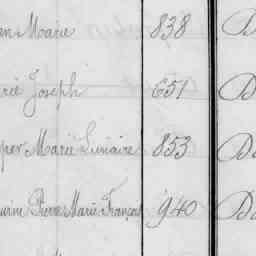 en Marie 838 D
rie Joseph 651 D
per Marie Lunaire 853 D
urine Pierre Marie François 940 D